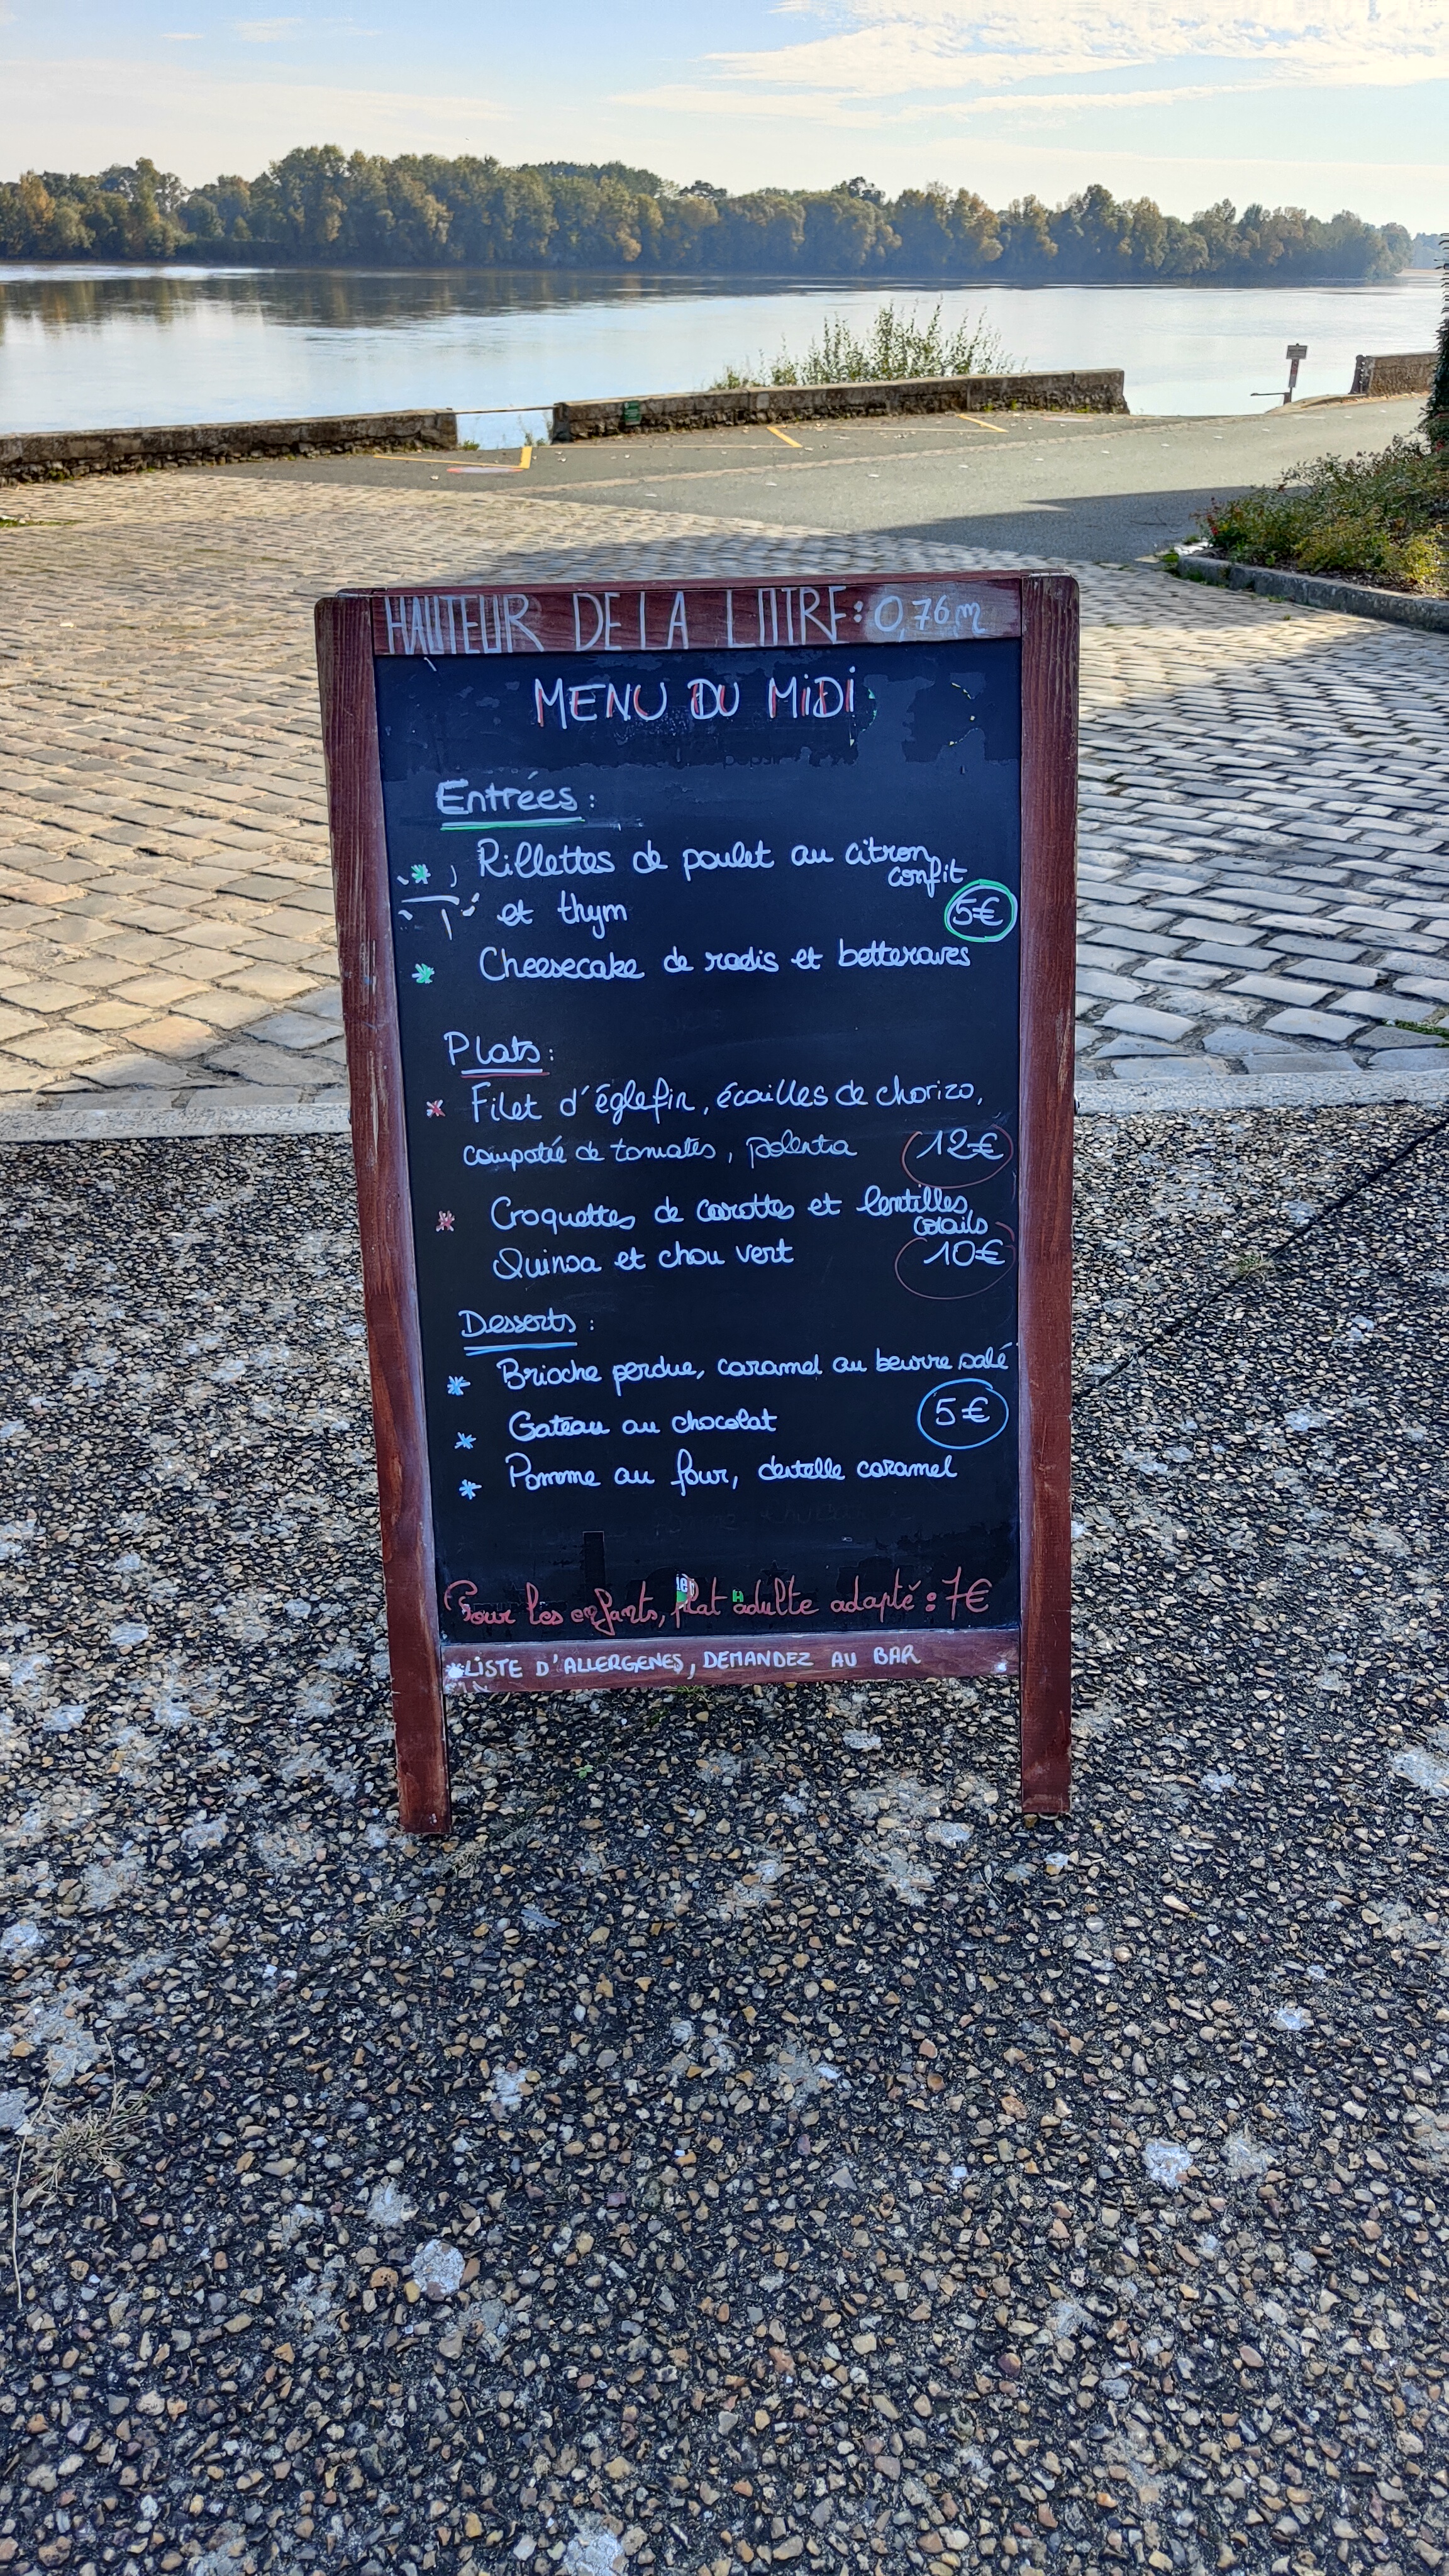 HAUTEUR DE LA LOIRE : 0,76 m
MENU DU MiDi
Entrées :
Rillettes de poulet au citron confit
et thym 5€
Cheesecake de radis et betteraves
Plats :
Filet d'églefin, écailles de chorizo,
compotée de tomates, polenta 12€
Croquettes de carottes et lentilles corails
Quinoa et chou vert 10€
Desserts :
Brioche perdue, caramel au beurre salé
5€
Gateau au chocolat
Pomme au four, dentelle caramel
Pour les enfants, plat adulte adapté : 7€
*LISTE D'ALLERGENES, DEMANDEZ AU BAR